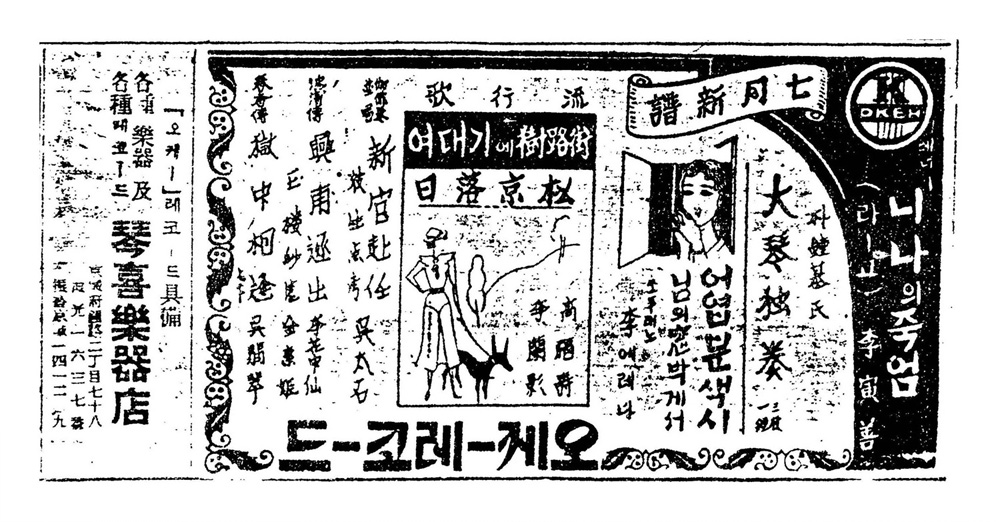 K
OKEH
七月新譜
니나의죽엄
李寅善
大琴独奏
朴鍾基氏
어엽분색시
님의
박게서
소푸라노
李에레나
流行歌
街路樹에기대여
松京落日
李蘭影
新官赴任
吳太石
興甫逐出
李花中仙
春香傳
獄中相逢
吳翡翠
오케-레코-드
「오케-」레코-드具備
各種樂器及
各種레코-드
琴喜樂器店
二丁目七十八
光一六三七番
一四一一九